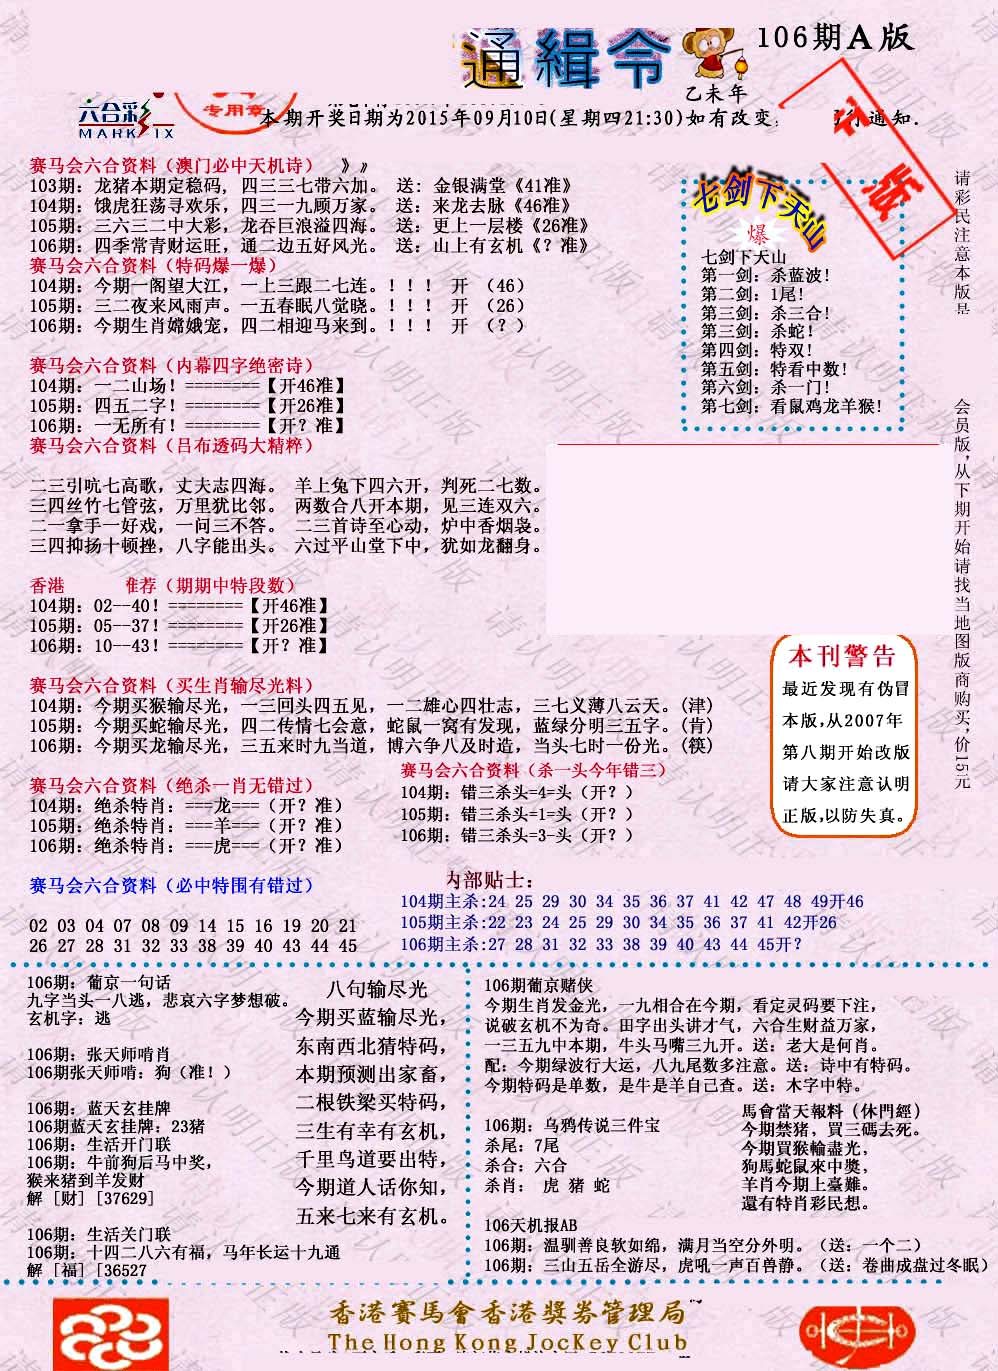 通緝令
106期A版
乙未年
六合彩
MARK SIX
专用章
本期开奖日期为2015年09月10日(星期四21:30)如有改变,
通知.
赛马会六合资料（澳门必中天机诗） 》》
103期：龙猪本期定稳码，四三三七带六加。 送：金银满堂《41准》
104期：饿虎狂荡寻欢乐，四三一九顾万家。 送：来龙去脉《46准》
105期：三六三二中大彩，龙吞巨浪溢四海。 送：更上一层楼《26准》
106期：四季常青财运旺，通二边五好风光。 送：山上有玄机《？准》
赛马会六合资料（特码爆一爆）
104期：今期一阁望大江，一上三跟二七连。！！！ 开 （46）
105期：三二夜来风雨声。一五春眠八觉晓。！！！ 开 （26）
106期：今期生肖嫦娥宠，四二相迎马来到。！！！ 开 （？）
赛马会六合资料（内幕四字绝密诗）
104期：一二山场！========【开46准】
105期：四五二字！========【开26准】
106期：一无所有！========【开？准】
赛马会六合资料（吕布透码大精粹）
二三引吭七高歌，丈夫志四海。 羊上兔下四六开，判死二七数。
三四丝竹七管弦，万里犹比邻。 两数合八开本期，见三连双六。
二一拿手一好戏，一问三不答。 二三首诗至心动，炉中香烟袅。
三四抑扬十顿挫，八字能出头。 六过平山堂下中，犹如龙翻身。
七剑下天山
爆
七剑下天山
第一剑：杀蓝波！
第二剑：1尾！
第三剑：杀三合！
第三剑：杀蛇！
第四剑：特双！
第五剑：特看中数！
第六剑：杀一门！
第七剑：看鼠鸡龙羊猴！
请彩民注意本版是
会员版，从下期开始请找当地图版商购买，价15元
香港 推荐（期期中特段数）
104期：02--40！========【开46准】
105期：05--37！========【开26准】
106期：10--43！========【开？准】
赛马会六合资料（买生肖输尽光料）
104期：今期买猴输尽光，一三回头四五见，一二雄心四壮志，三七义薄八云天。(津)
105期：今期买蛇输尽光，四二传情七会意，蛇鼠一窝有发现，蓝绿分明三五字。(肯)
106期：今期买龙输尽光，三五来时九当道，博六争八及时造，当头七时一份光。(筷)
本刊警告
最近发现有伪冒
本版,从2007年
第八期开始改版
请大家注意认明
正版,以防失真。
赛马会六合资料（绝杀一肖无错过）
104期：绝杀特肖：===龙===（开？准）
105期：绝杀特肖：===羊===（开？准）
106期：绝杀特肖：===虎===（开？准）
赛马会六合资料（杀一头今年错三）
104期：错三杀头=4=头（开？）
105期：错三杀头=1=头（开？）
106期：错三杀头=3-头（开？）
赛马会六合资料（必中特围有错过）
02 03 04 07 08 09 14 15 16 19 20 21
26 27 28 31 32 33 38 39 40 43 44 45
内部贴士：
104期主杀:24 25 29 30 34 35 36 37 41 42 47 48 49开46
105期主杀:22 23 24 25 29 30 34 35 36 37 41 42开26
106期主杀:27 28 31 32 33 38 39 40 43 44 45开？
106期：葡京一句话
九字当头一八逃，悲哀六字梦想破。
玄机字：逃
106期：张天师啃肖
106期张天师啃：狗（准！）
106期：蓝天玄挂牌
106期蓝天玄挂牌：23猪
106期：生活开门联
106期：牛前狗后马中奖，
猴来猪到羊发财
解 [财] [37629]
106期：生活关门联
106期：十四二八六有福，马年长运十九通
解 [福] [36527
八句输尽光
今期买蓝输尽光，
东南西北猜特码，
本期预测出家畜，
二根铁梁买特码，
三生有幸有玄机，
千里鸟道要出特，
今期道人话你知，
五来七来有玄机。
106期葡京赌侠
今期生肖发金光，一九相合在今期，看定灵码要下注，
说破玄机不为奇。田字出头讲才气，六合生财益万家，
一三五九中本期，牛头马嘴三九开。送：老大是何肖。
配：今期绿波行大运，八九尾数多注意。送：诗中有特码。
今期特码是单数，是牛是羊自己查。送：木字中特。
106期：乌鸦传说三件宝
杀尾：7尾
杀合：六合
杀肖： 虎 猪 蛇
馬會當天報料（休門經）
今期禁猪，買三碼去死。
今期買猴輸盡光，
狗馬蛇鼠來中獎，
羊肖今期上臺難。
還有特肖彩民想。
106天机报AB
106期：温驯善良软如绵，满月当空分外明。（送：一个二）
106期：三山五岳全游尽，虎吼一声百兽静。（送：卷曲成盘过冬眠）
香港賽馬會香港獎券管理局
The Hong Kong JocKey Club